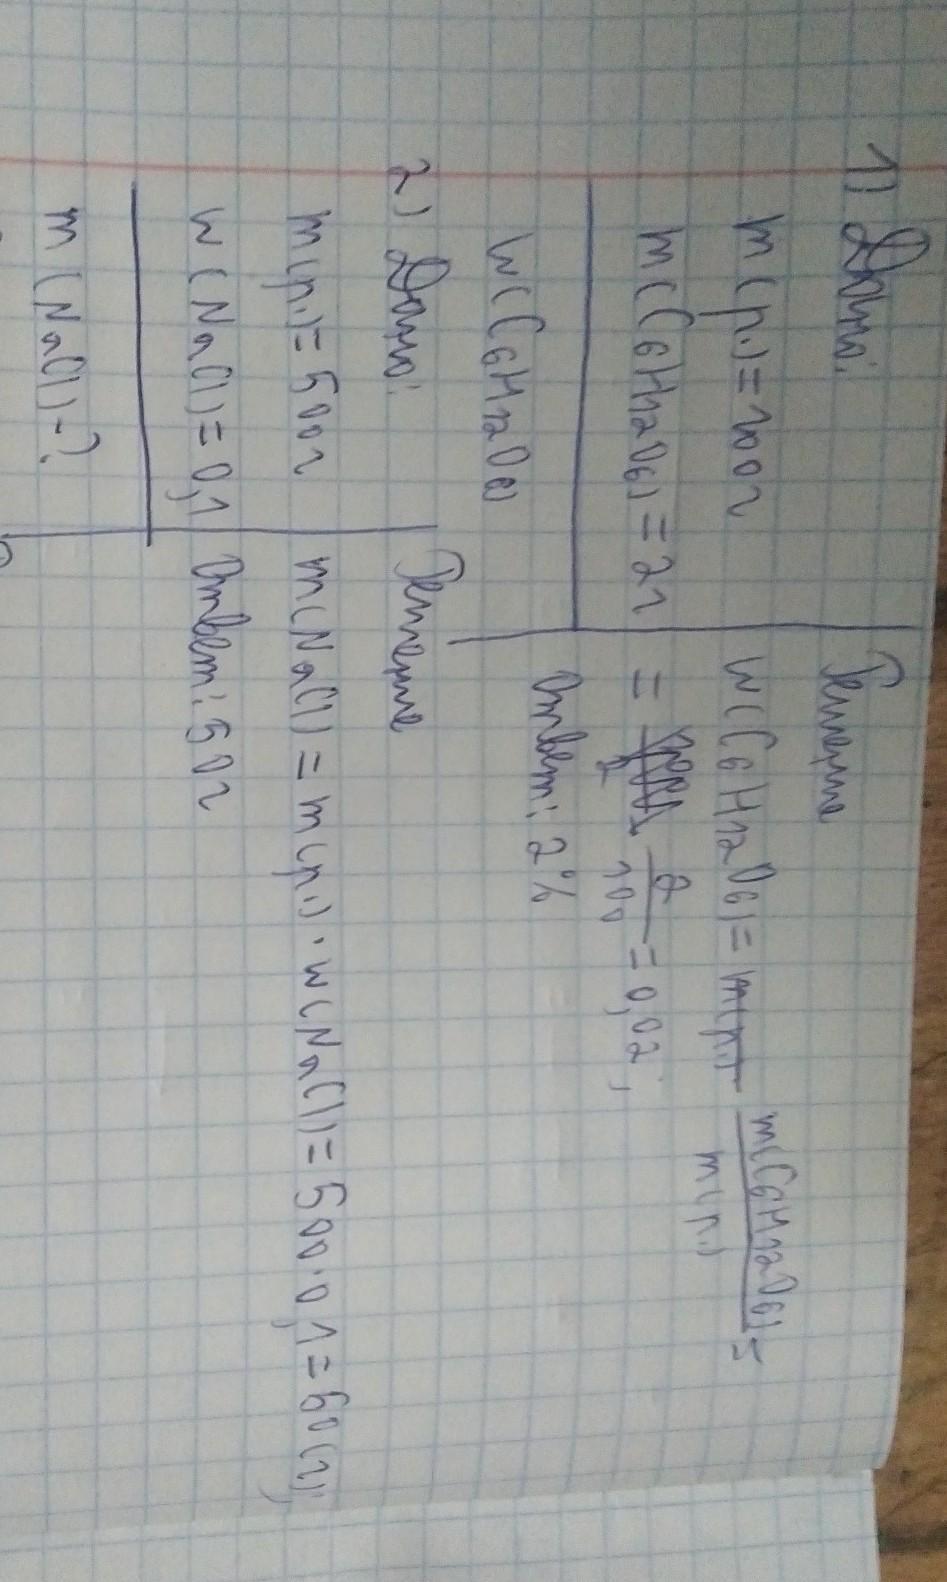 1) Дано:
m(р.)=100г
m(C6H12O6)=2г
w(C6H12O6)
Решение
w(C6H12O6)= m(р.) m(C6H12O6) =
m(р.)
= 2
100 =0,02,
Ответ: 2%
2) Дано:
m(р.)=500г
w(NaCl)=0,1
m(NaCl)-?
Решение
m(NaCl)=m(р.)·w(NaCl)=500·0,1=60(г),
Ответ: 50г